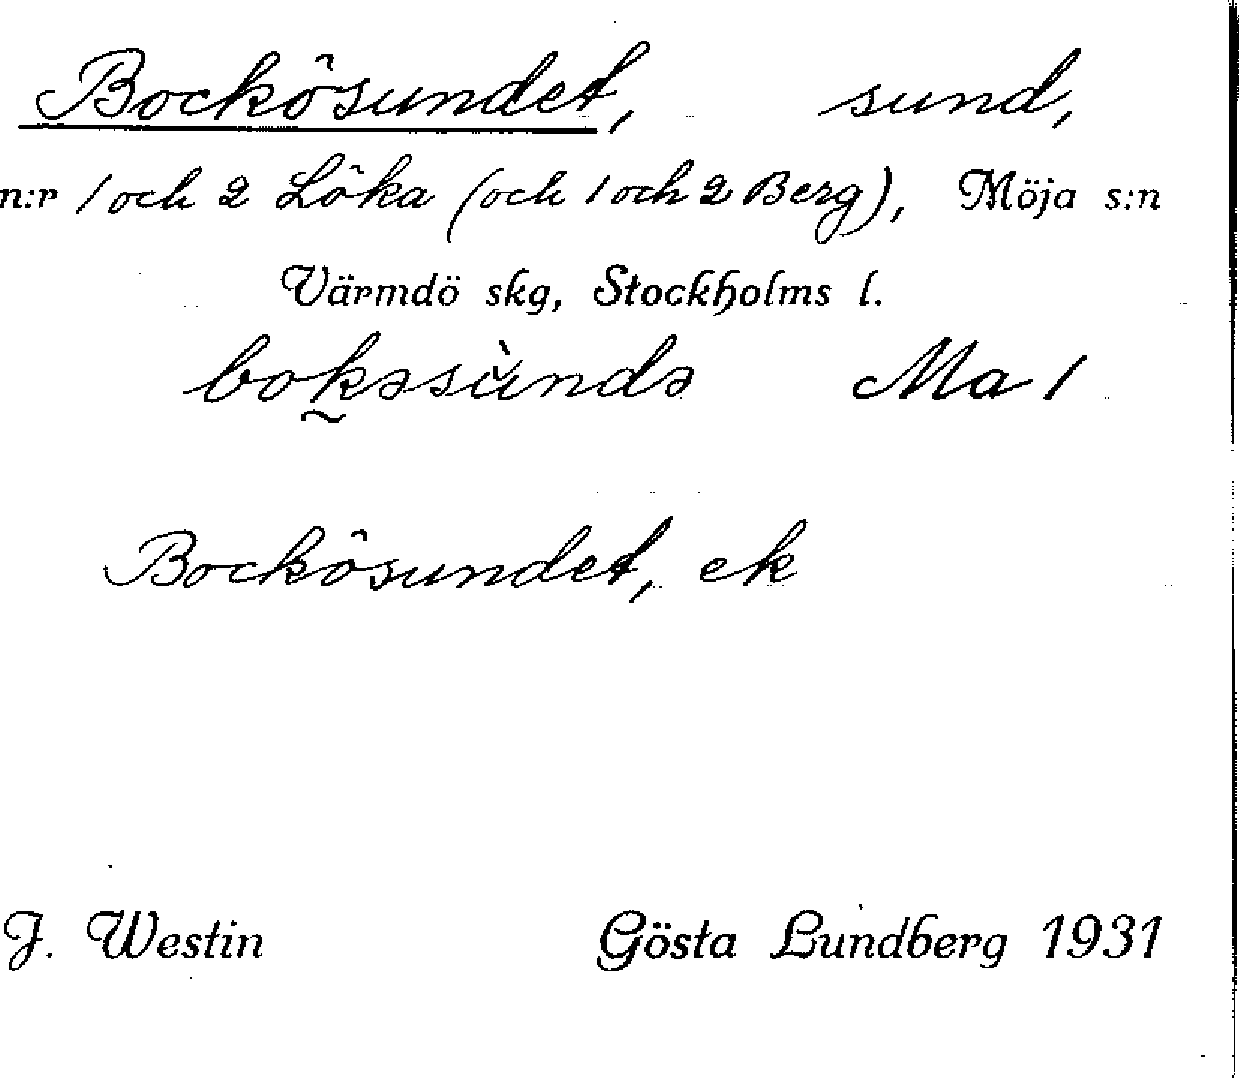 Bockösundet, sund,
n:r 1 och 2 Löka (och 1 och 2 Berg), Möja s:n
Värmdö skg, Stockholms l.
bokəsùndə Ma 1
Bockösundet, ek
J. Westin Gösta Lundberg 1931